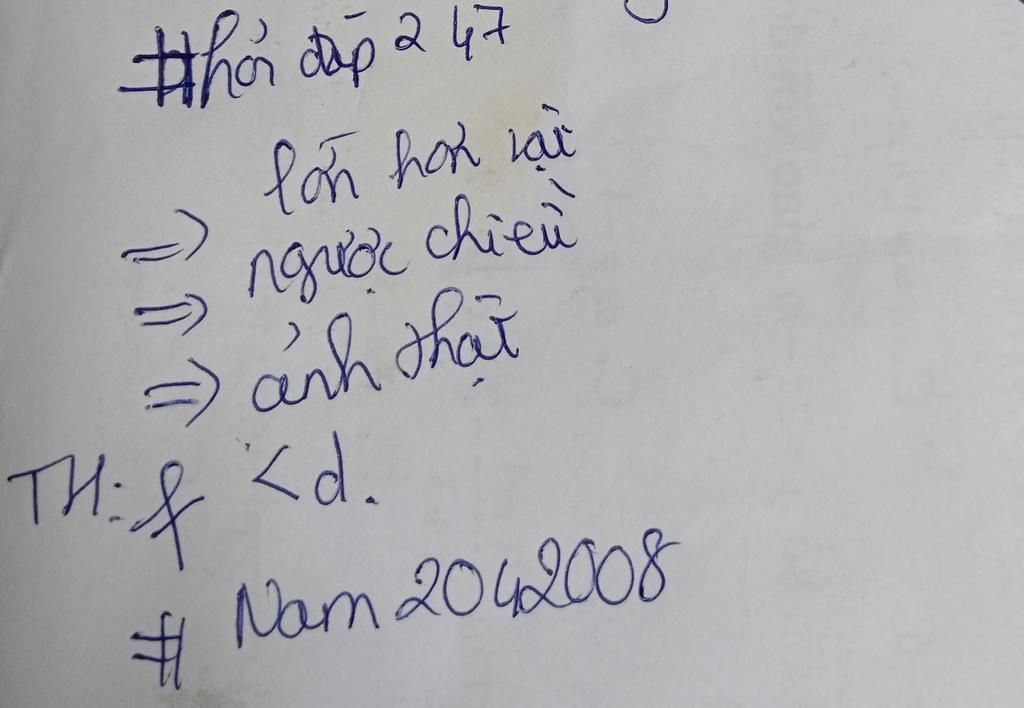 #hỏi đáp 247
lớn hơn vật
=> ngược chiều
=>
=> ảnh thật
TH: f < d.
# Nam2042008